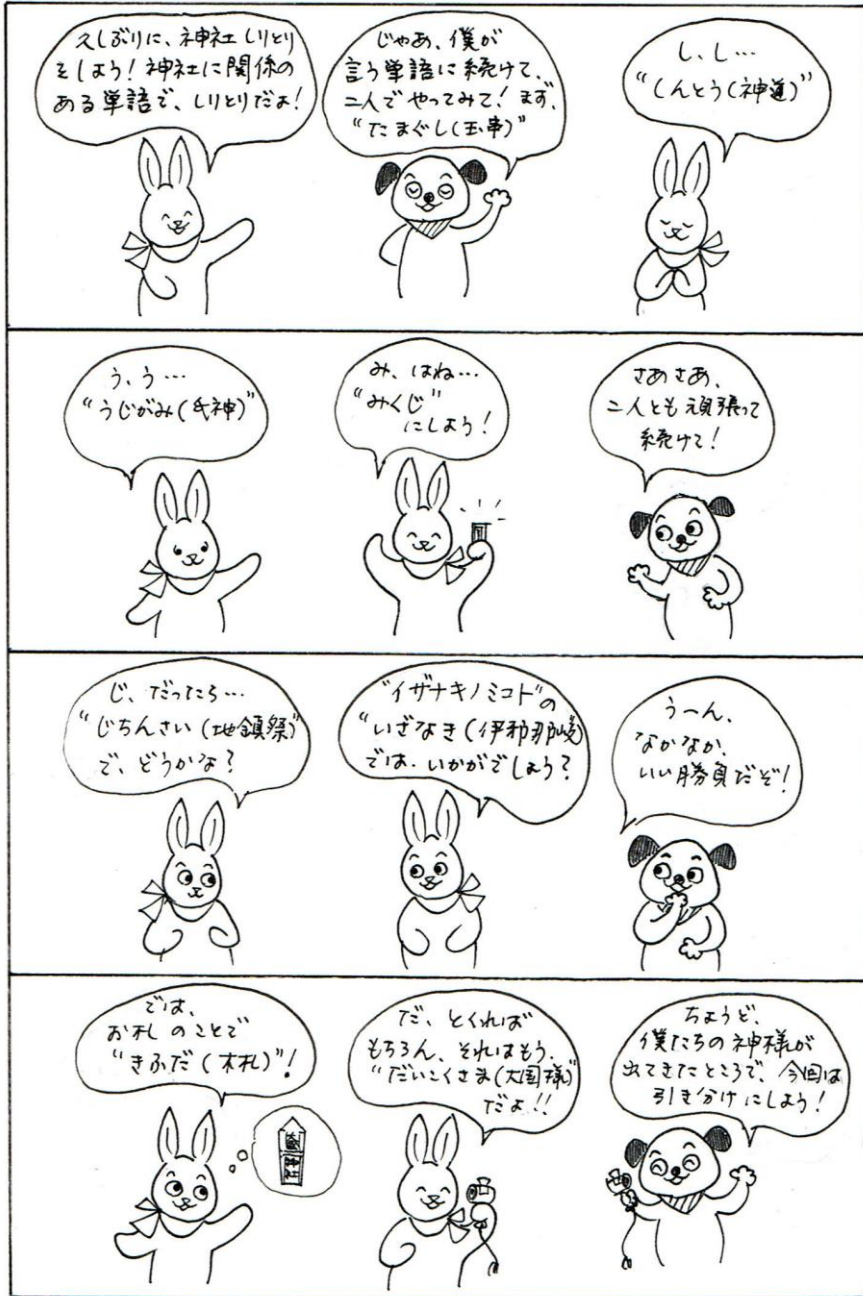 久しぶりに、神社しりとり
をしよう！神社に関係の
ある単語で、しりとりだよ！
じゃあ、僕が
言う単語に続けて、
二人でやってみて！まず、
“たまぐし(玉串)”
し、し…
“しんとう(神道)”
う、う…
“うじがみ(氏神)”
み、はね…
“みくじ”
にしよう！
さあさあ、
二人とも頑張って
続けて！
じ、だったら…
“じちんさい(地鎮祭)”
で、どうかな？
“イザナキノミコト”の
“いざなき(伊邪那岐)
では、いかがでしょう？
うーん、
なかなか、
いい勝負だぞ！
では、
お札のことで
“きふだ(木札)”！
だ、とくれば
もちろん、それはもう、
“だいこくさま(大国様)”
だよ！！
ちょうど、
僕たちの神様が
出てきたところで、今回は
引き分けにしよう！